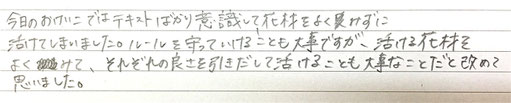 今日のおけいこではテキストばかり意識して花材をよく見ずに
活けてしまいました。ルールを守っていけることも大事ですが、活ける花材を
よくみて、それぞれの良さを引きだして活けることも大事なことだと改めて
思いました。